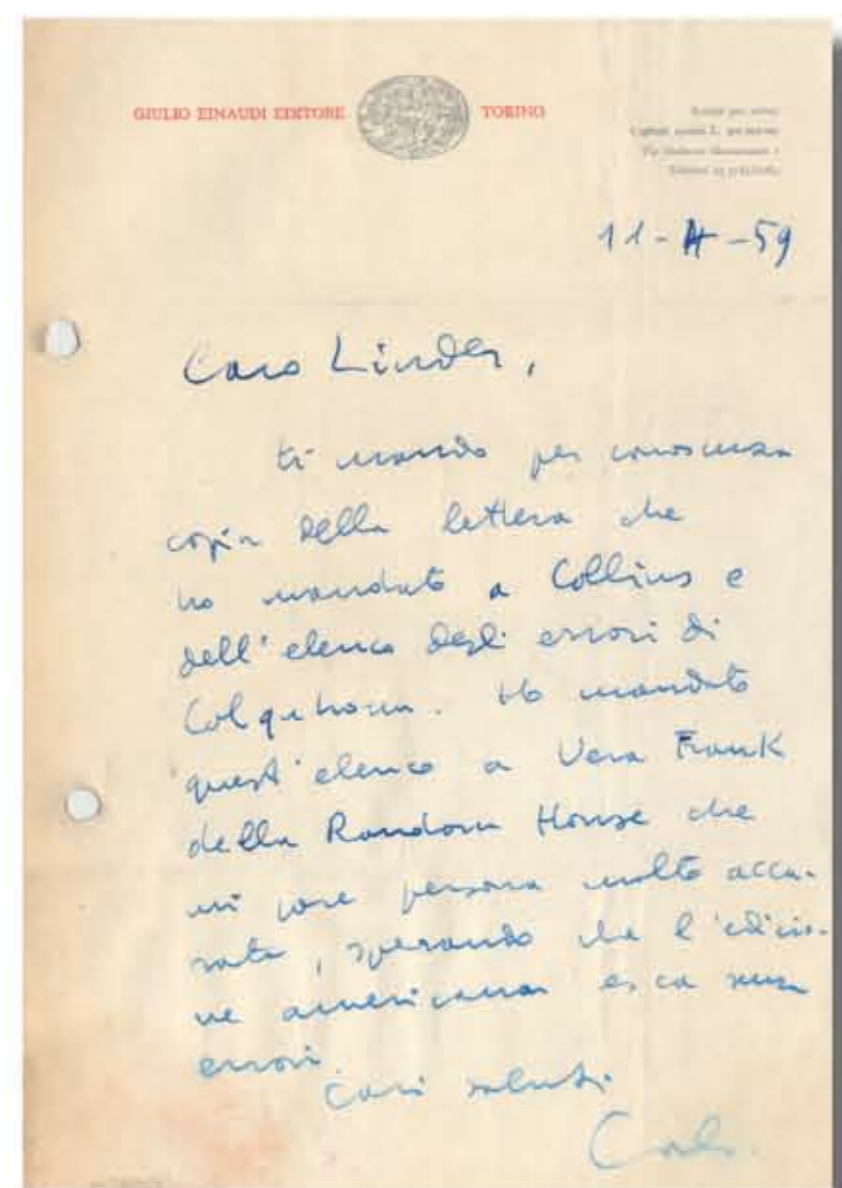 GIULIO EINAUDI EDITORE TORINO
11-4-59
Caro Linder,
ti mando per conoscenza
copia della lettera che
ho mandato a Collins e
dell'elenco degli errori di
Colquhoun. Ho mandato
quest'elenco a Vera Frank
della Random House che
mi pare persona molto accu-
rata, sperando che l'edizio-
ne americana esca senza
errori.
Cari saluti